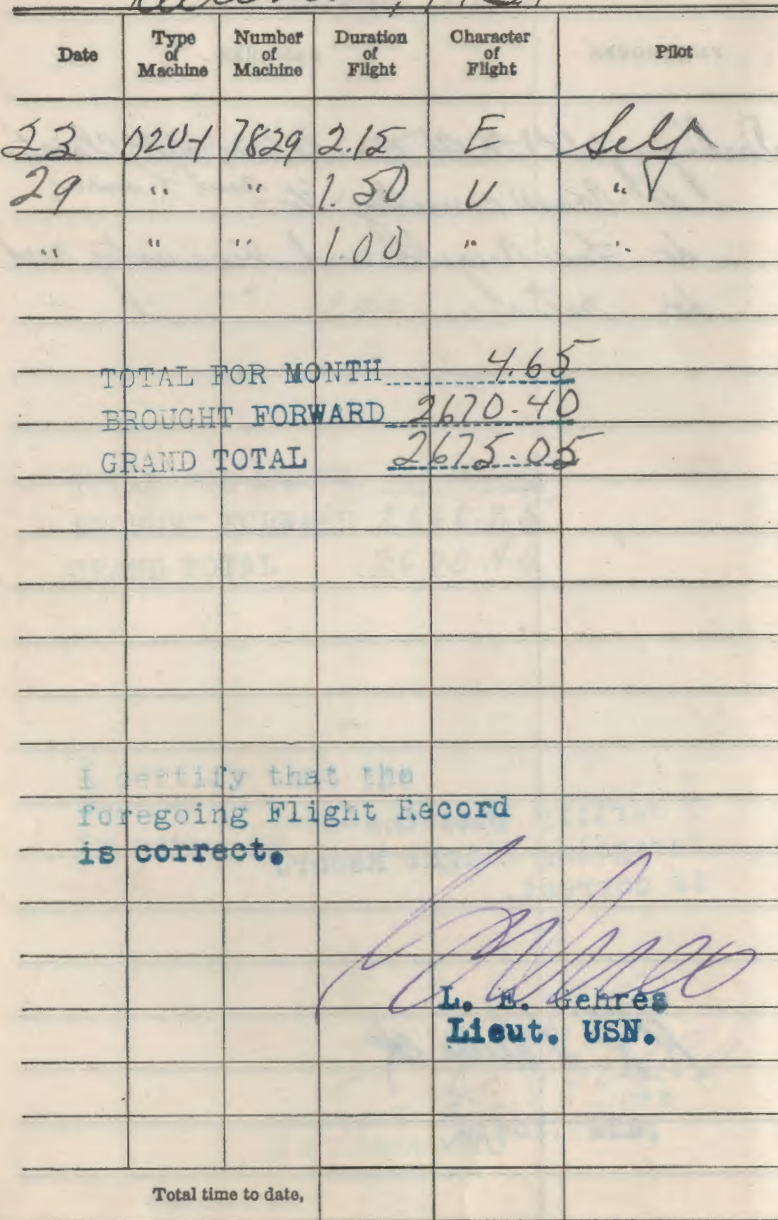 Date Type of Machine Number of Machine Duration of Flight Character of Flight Pilot
23 O2U-1 7829 2.15 E Self
29 " " 1.50 U "
" " " 1.00 " "
TOTAL FOR MONTH 4.65
BROUGHT FORWARD 2670.40
GRAND TOTAL 2675.05
I certify that the
foregoing Flight Record
is correct.
L. E. Gehres
Lieut. USN.
Total time to date,